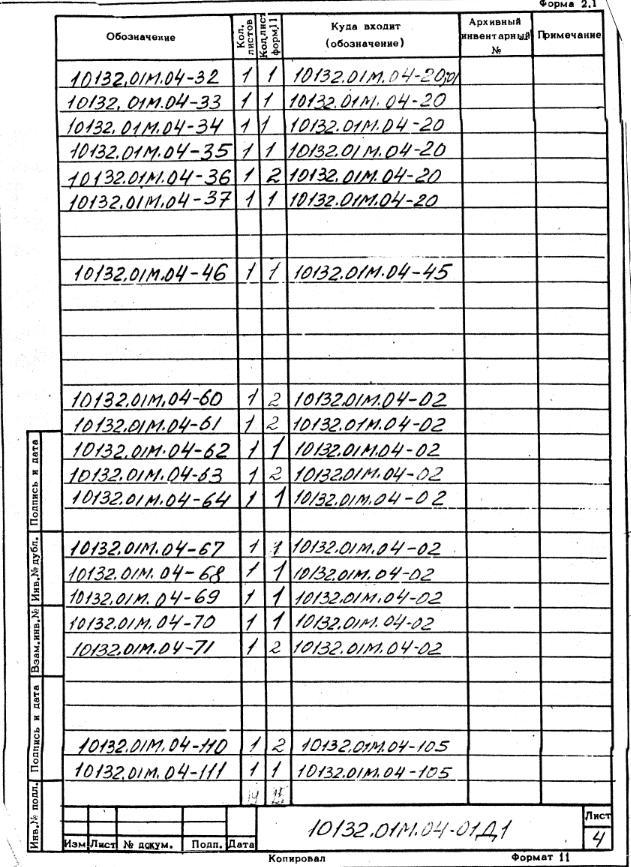 Форма 2.1
Обозначение Кол. листов Кол. лист форм. 11 Куда входит (обозначение) Архивный инвентарный № Примечание
10132.01М.04-32 1 1 10132.01М.04-20
10132.01М.04-33 1 1 10132.01М.04-20
10132.01М.04-34 1 1 10132.01М.04-20
10132.01М.04-35 1 1 10132.01М.04-20
10132.01М.04-36 1 2 10132.01М.04-20
10132.01М.04-37 1 1 10132.01М.04-20
10132.01М.04-46 1 1 10132.01М.04-45
10132.01М.04-60 1 2 10132.01М.04-02
10132.01М.04-61 1 2 10132.01М.04-02
10132.01М.04-62 1 1 10132.01М.04-02
10132.01М.04-63 1 2 10132.01М.04-02
10132.01М.04-64 1 1 10132.01М.04-02
10132.01М.04-67 1 1 10132.01М.04-02
10132.01М.04-68 1 1 10132.01М.04-02
10132.01М.04-69 1 1 10132.01М.04-02
10132.01М.04-70 1 1 10132.01М.04-02
10132.01М.04-71 1 2 10132.01М.04-02
10132.01М.04-110 1 2 10132.01М.04-105
10132.01М.04-111 1 1 10132.01М.04-105
Подпись и дата
Инв.№ дубл.
Взам.инв.№
Подпись и дата
Инв.№ подл.
10132.01М.04-01Д1
Лист
4
Изм Лист № докум. Подп. Дата
Копировал Формат 11